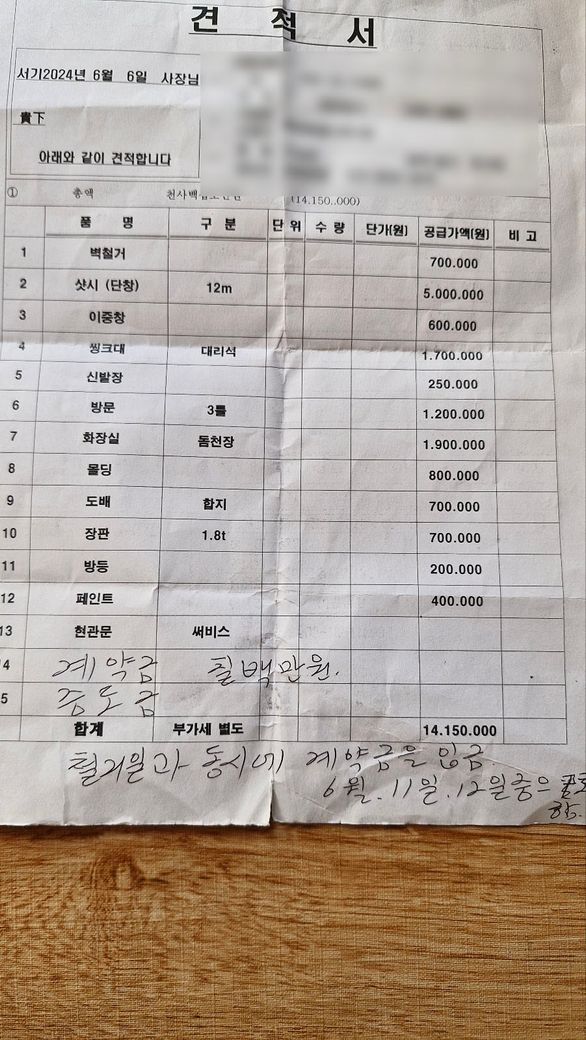 견 적 서
서기2024년 6월 6일 사장님
貴下
아래와 같이 견적합니다
① 총액 (14.150..000)
품 명 구 분 단 위 수 량 단가(원) 공급가액(원) 비 고
1 벽철거 700.000
2 샷시 (단창) 12m 5.000.000
3 이중창 600.000
4 씽크대 대리석 1.700.000
5 신발장 250.000
6 방문 3틀 1.200.000
7 화장실 돔천장 1.900.000
8 몰딩 800.000
9 도배 합지 700.000
10 장판 1.8t 700.000
11 방등 200.000
12 페인트 400.000
13 현관문 써비스
4 계약금 칠백만원.
5 중도금
합계 부가세 별도 14.150.000
철거일과 동시에 계약금을 입금.
6월. 11일. 12일중으
함.